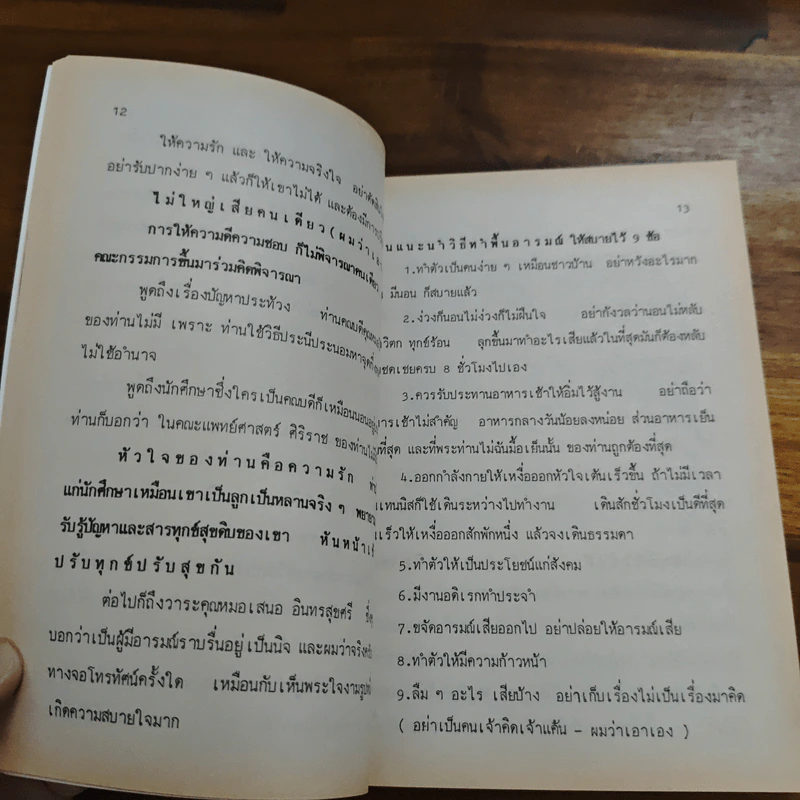 12
ให้ความรัก และ ให้ความจริงใจ อย่าตัดสิน
อย่ารับปากง่าย ๆ แล้วก็ให้เขาไม่ได้ และต้องมีการ
ไม่ใหญ่เสียคนเดียว (ผมว่าเอา
การให้ความดีความชอบ ก็ไม่พิจารณาคนเดียว
คณะกรรมการขึ้นมาร่วมคิดพิจารณา
พูดถึงเรื่องปัญหาประท้วง ท่านคณบดีคุณ
ของท่านไม่มี เพราะ ท่านใช้วิธีประนีประนอมหาจุด
ไม่ใช้อำนาจ
พูดถึงนักศึกษาซึ่งใครเป็นคณบดีก็เหมือนนอนอยู่
ท่านก็บอกว่า ในคณะแพทย์ศาสตร์ ศิริราช ของท่านไม่
หัวใจของท่านคือความรัก
แก่นักศึกษาเหมือนเขาเป็นลูกเป็นหลานจริง ๆ พยายาม
รับรู้ปัญหาและสารทุกข์สุขดิบของเขา หันหน้าเข้
ปรับทุกข์ปรับสุขกัน
ต่อไปก็ถึงวาระคุณหมอเสนอ อินทรสุขศรี
บอกว่าเป็นผู้มีอารมณ์ราบรื่นอยู่เป็นนิจ และผมว่าจริง
ทางจอโทรทัศน์ครั้งใด เหมือนกับเห็นพระใจงามรูป
เกิดความสบายใจมาก
13
นแนะนำวิธีทำพื้นอารมณ์ ให้สบายไว้ 9 ข้อ
1.ทำตัวเป็นคนง่าย ๆ เหมือนชาวบ้าน อย่าหวังอะไรมาก
มีนอน ก็สบายแล้ว
2.ง่วงก็นอนไม่ง่วงก็ไม่ฝืนใจ อย่ากังวลว่านอนไม่หลับ
วิตก ทุกข์ร้อน ลุกขึ้นมาทำอะไรเสียแล้วในที่สุดมันก็ต้องหลับ
ชดเชยครบ 8 ชั่วโมงไปเอง
3.ควรรับประทานอาหารเช้าให้อิ่มไว้สู้งาน อย่าถือว่า
ารเช้าไม่สำคัญ อาหารกลางวันน้อยลงหน่อย ส่วนอาหารเย็น
ที่สุด และที่พระท่านไม่ฉันมื้อเย็นนั้น ของท่านถูกต้องที่สุด
4.ออกกำลังกายให้เหงื่อออกหัวใจเต้นเร็วขึ้น ถ้าไม่มีเวลา
เทนนิสก็ใช้เดินระหว่างไปทำงาน เดินสักชั่วโมงเป็นดีที่สุด
เร็วให้เหงื่อออกสักพักหนึ่ง แล้วจงเดินธรรมดา
5.ทำตัวให้เป็นประโยชน์แก่สังคม
6.มีงานอดิเรกทำประจำ
7.ขจัดอารมณ์เสียออกไป อย่าปล่อยให้อารมณ์เสีย
8.ทำตัวให้มีความก้าวหน้า
9.ลืม ๆ อะไร เสียบ้าง อย่าเก็บเรื่องไม่เป็นเรื่องมาคิด
( อย่าเป็นคนเจ้าคิดเจ้าแค้น - ผมว่าเอาเอง )